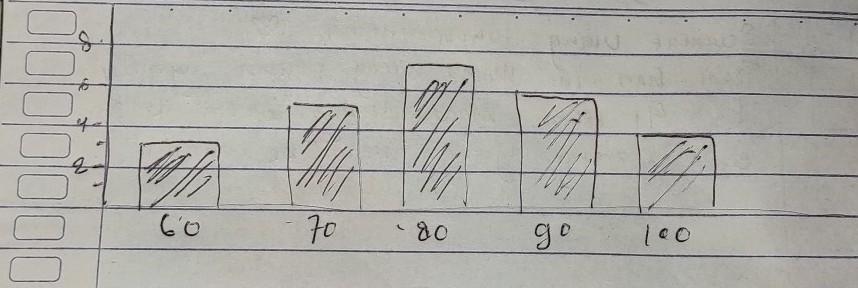 8
6
4
2
60 70 80 90 100